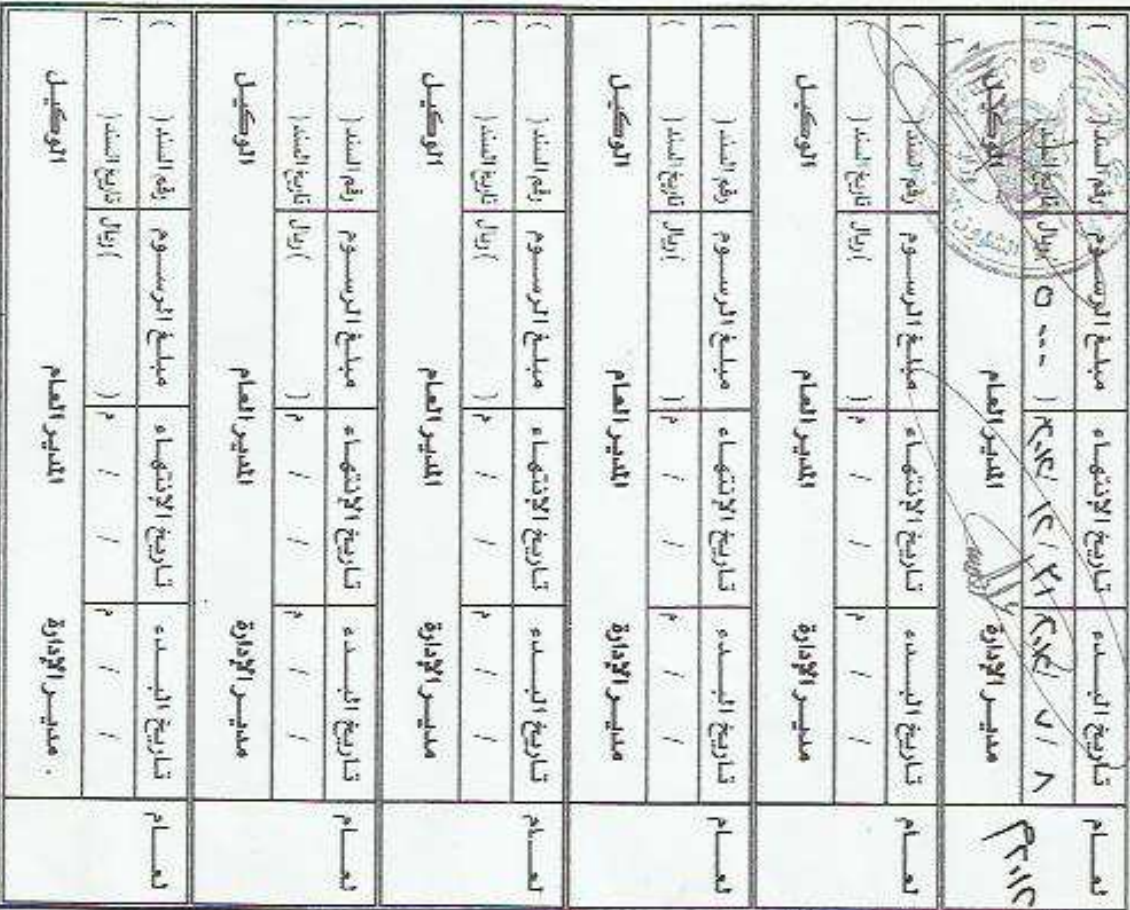 لعـــام تاريخ البـــدء تاريخ الإنتهـاء مبلـغ الرســوم رقم السند ( )
٢٠١٢م ٨ / ٧ / ٢٠١٢ ٣١ / ١٢ / ٢٠١٢ ( ٥٠٠٠ ) ريال تاريخ السند ( )
مديـر الإدارة المدير العام الوكيـل
لعـــام تاريخ البـــدء تاريخ الإنتهـاء مبلـغ الرســوم رقم السند ( )
/ / م / / م ( ) ريال تاريخ السند ( )
مديـر الإدارة المدير العام الوكيـل
لعـــام تاريخ البـــدء تاريخ الإنتهـاء مبلـغ الرســوم رقم السند ( )
/ / م / / م ( ) ريال تاريخ السند ( )
مديـر الإدارة المدير العام الوكيـل
لعـــام تاريخ البـــدء تاريخ الإنتهـاء مبلـغ الرســوم رقم السند ( )
/ / م / / م ( ) ريال تاريخ السند ( )
مديـر الإدارة المدير العام الوكيـل
لعـــام تاريخ البـــدء تاريخ الإنتهـاء مبلـغ الرســوم رقم السند ( )
/ / م / / م ( ) ريال تاريخ السند ( )
مديـر الإدارة المدير العام الوكيـل
لعـــام تاريخ البـــدء تاريخ الإنتهـاء مبلـغ الرســوم رقم السند ( )
/ / م / / م ( ) ريال تاريخ السند ( )
مديـر الإدارة المدير العام الوكيـل